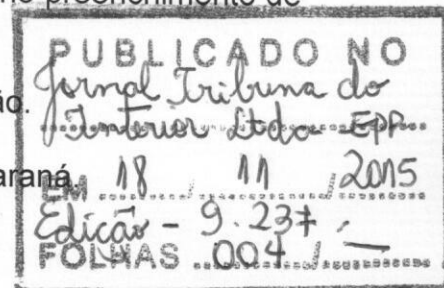 no preenchimento de
PUBLICADO NO
Jornal Tribuna do
ão.
Interior Ltda - EPP.
araná
EM 18 / 11 / 2015
Edição - 9.237 -
FOLHAS 004 / —